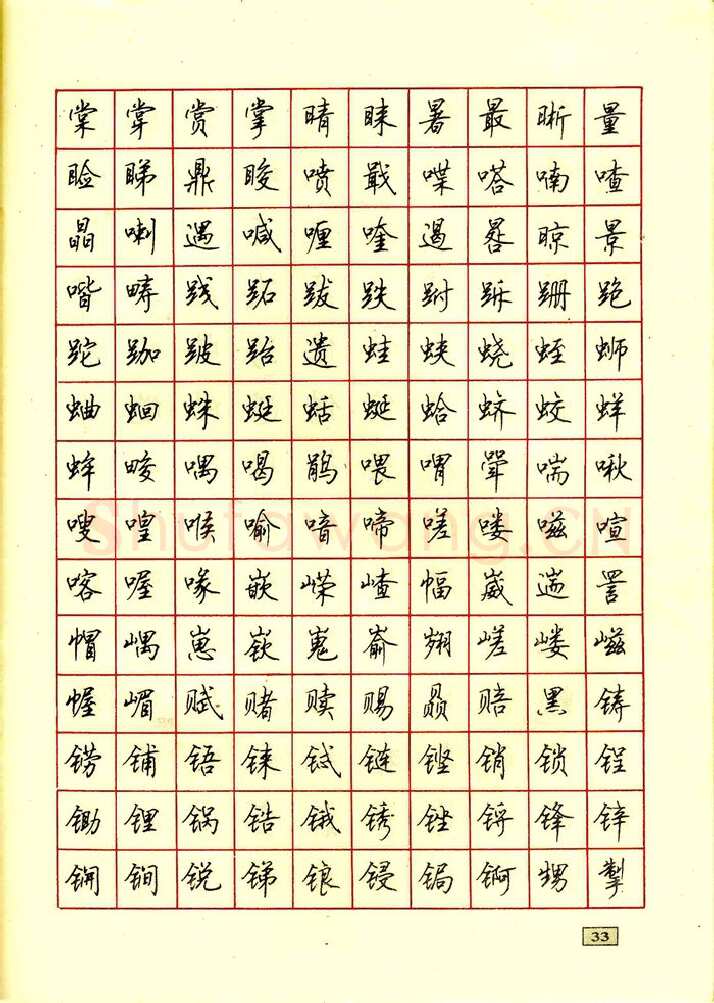 棠牚赏掌晴睐暑最晰量
睑睇鼎睃喷戢喋嗒喃喳
晶喇遇喊喱喹遏晷晾景
喈畴践跖跋跌跗跞跚跑
跎跏跛跆遗蛙蛱蛲蛭蛳
蛐蛔蛛蜓蛞蜒蛤蛴蛟蛘
蛑畯喁喝鹃喂喟斝喘啾
嗖喤喉喻喑啼嗟喽嗞喧
喀喔喙嵌嵘嵖幅崴遄詈
帽嵎崽嵚嵬嵛翙嵯嵝嵫
幄嵋赋赌赎赐赑赔黑铸
铹铺铻铼铽链铿销锁锃
锄锂锅锆锇锈锉锊锋锌
锎锏锐锑锒锓锔锕甥掣
33
Shufawang.CN